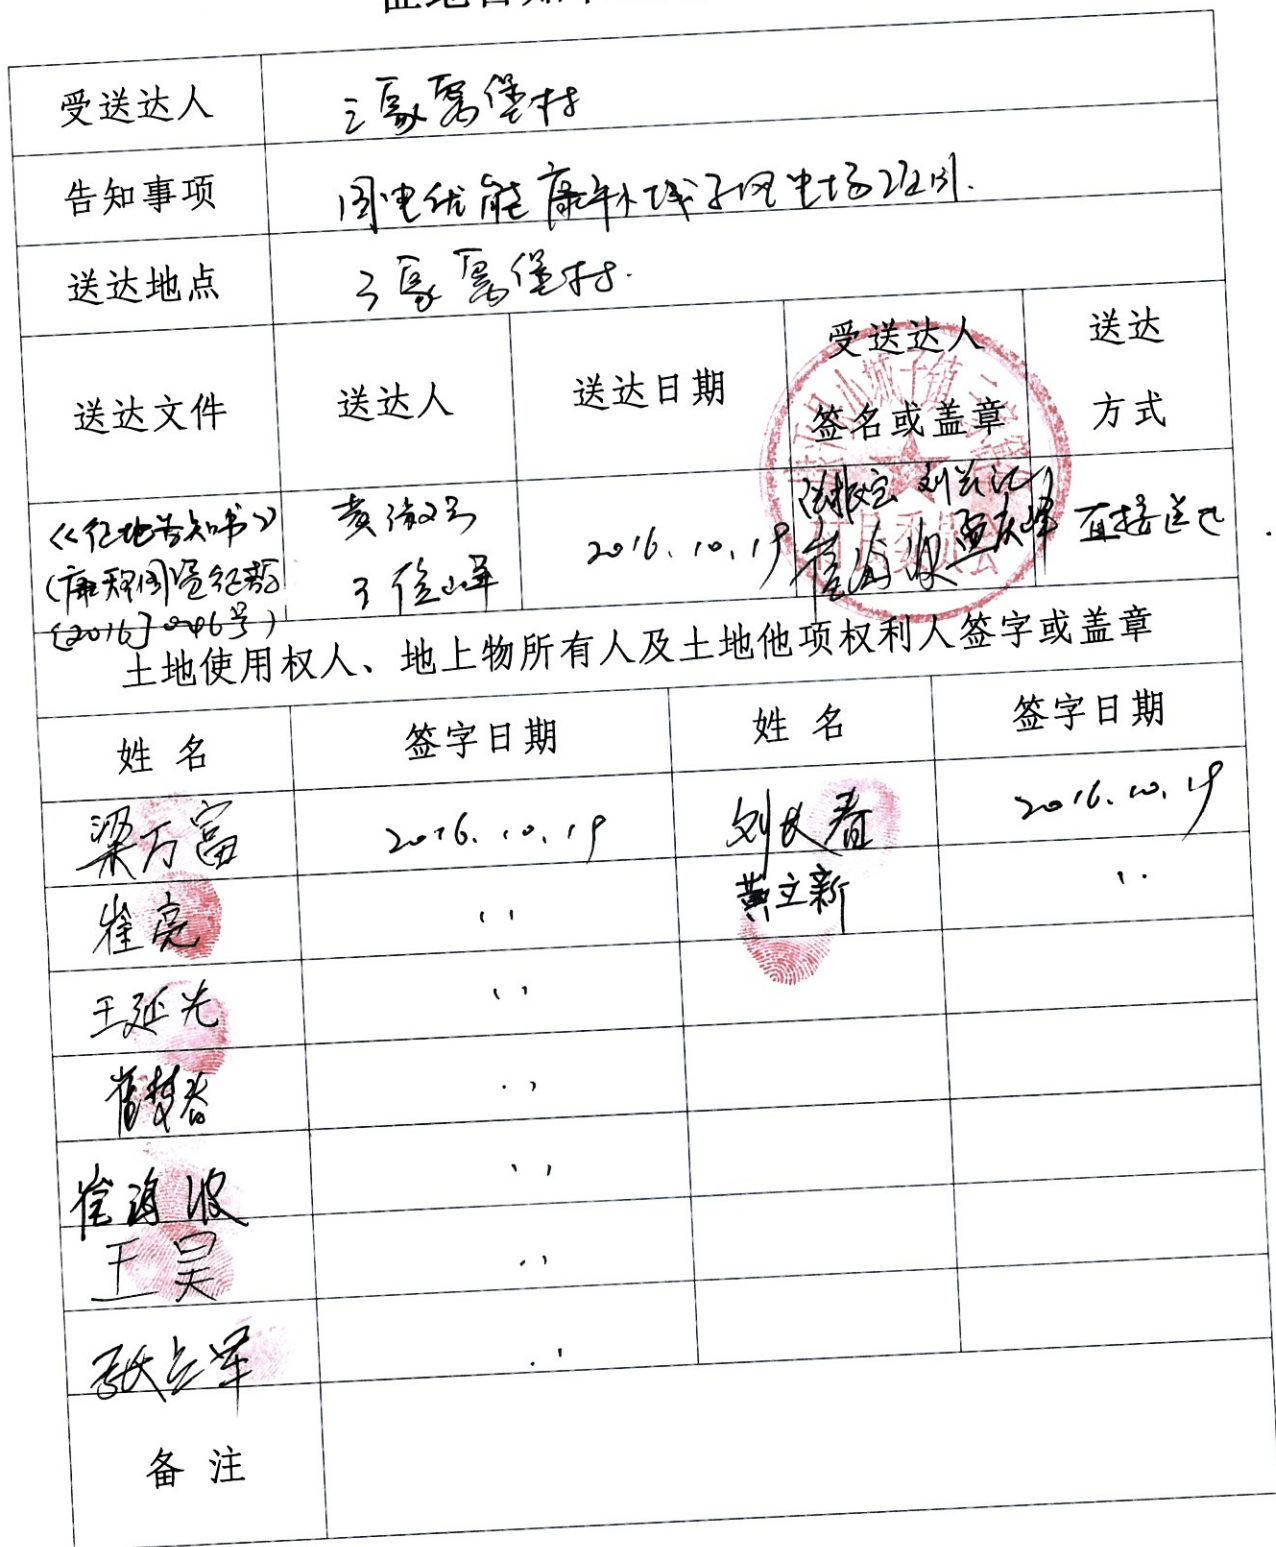 受送达人 三家窝堡村
告知事项 国电优能康平小城子风电场项目.
送达地点 三家窝堡村.
送达文件 送达人 送达日期 受送达人 签名或盖章 送达 方式
《征地告知书》 黄海 2016.10.19 直接送达
(康 国资征告 王俊峰
[2016]0046号)
土地使用权人、地上物所有人及土地他项权利人签字或盖章
姓 名 签字日期 姓 名 签字日期
梁万富 2016.10.19 刘长春 2016.10.19
崔亮 〃 黄立新 〃
王延光 〃
崔梦春 〃
崔海波 〃
王昊 〃
张立军 〃
备 注